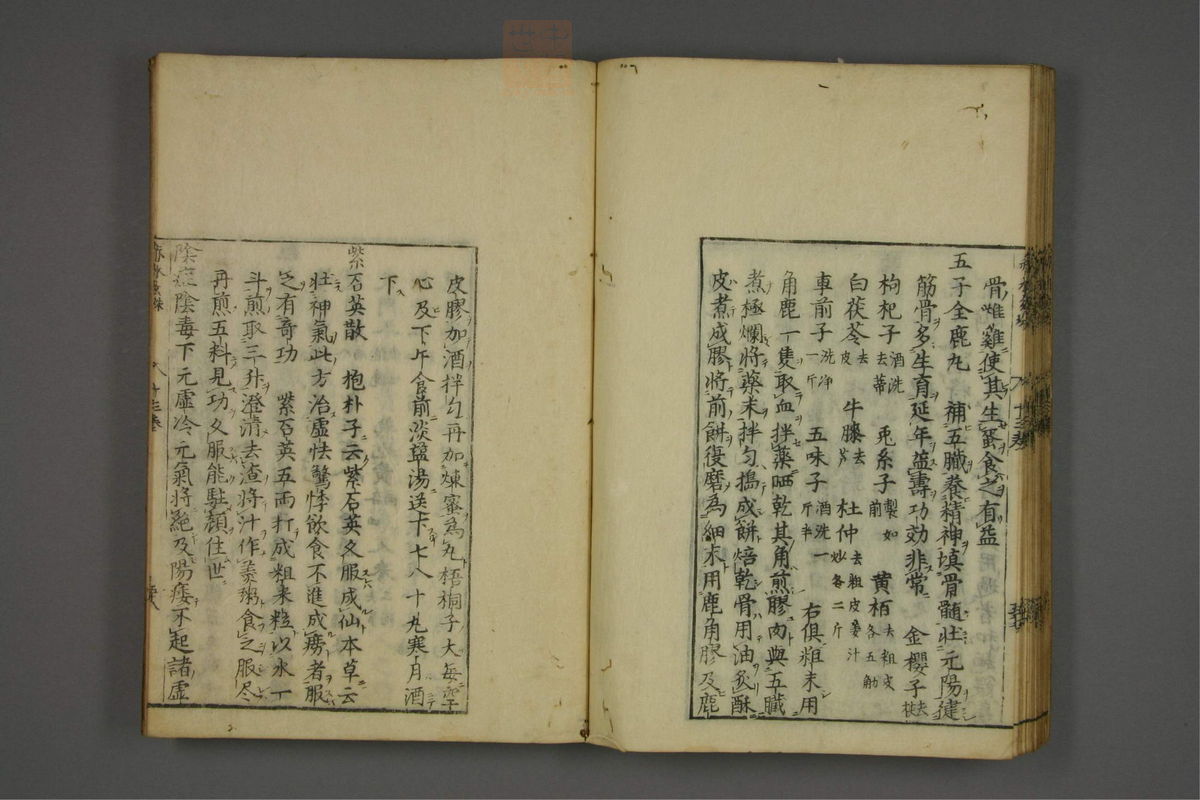 骨雌雞使其生蛋食之有益
五子全鹿丸 補五臟養精神填骨髓壯元陽健
筋骨多生育延年益壽功効非常 金櫻子去
枸杞子酒洗去蒂 兎糸子製如前 黄栢去粗皮各五觔
白茯苓去皮 牛膝去芦 杜仲去粗皮姜汁炒各二斤
車前子洗净一斤 五味子酒洗一斤半 右俱粗末用
角鹿一隻取血拌藥晒乾其角煎膠肉與五臟
煮極爛將藥末拌匀搗成餅焙乾骨用油炙酥
皮煮成膠將前餅復磨為細末用鹿角膠及鹿
皮膠加酒拌匀再加煉蜜為丸梧桐子大每空
心及下午食前淡鹽湯送下七八十丸寒月酒
下
紫石英散 抱朴子云紫石英久服成仙本草云
壯神氣此方治虛怯驚悸飲食不進成癆者服
之有奇功 紫石英五兩打成粗米粒以水一
斗煎取三升澄清去渣將汁作羹粥食之服尽
再煎五料見功久服能駐顔住世
陰症陰毒下元虛冷元氣將絕及陽痿不起諸虛